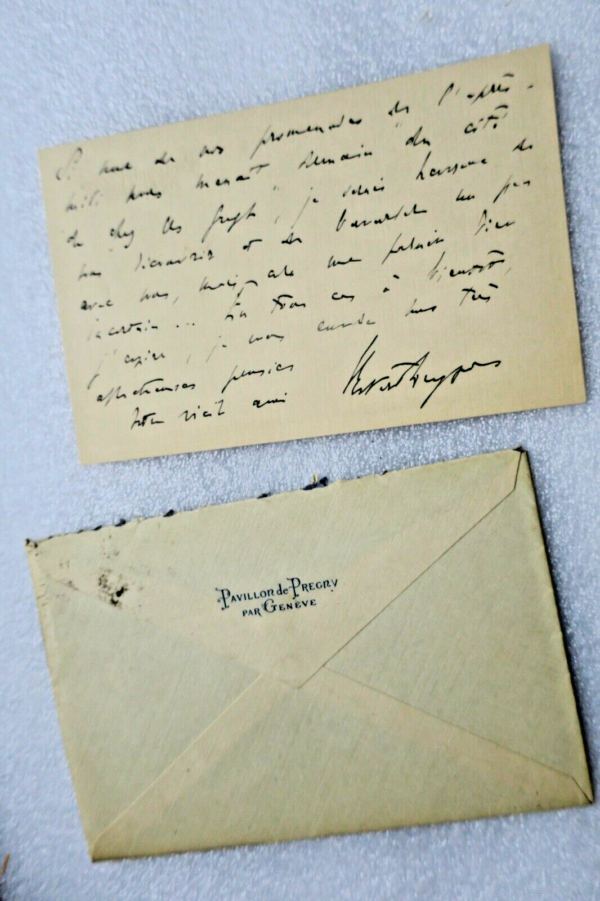 Si une de nos promenades de l'après-
midi nous menait demain du côté
de chez les, je serais heureux de
vous et de bavarder un peu
avec vous, mais
incertain ... En tous cas à bientôt,
j'espère, je vous envoie mes très
affectueuses pensées
Votre vieil ami
PAVILLON de PREGNY
PAR GENÈVE